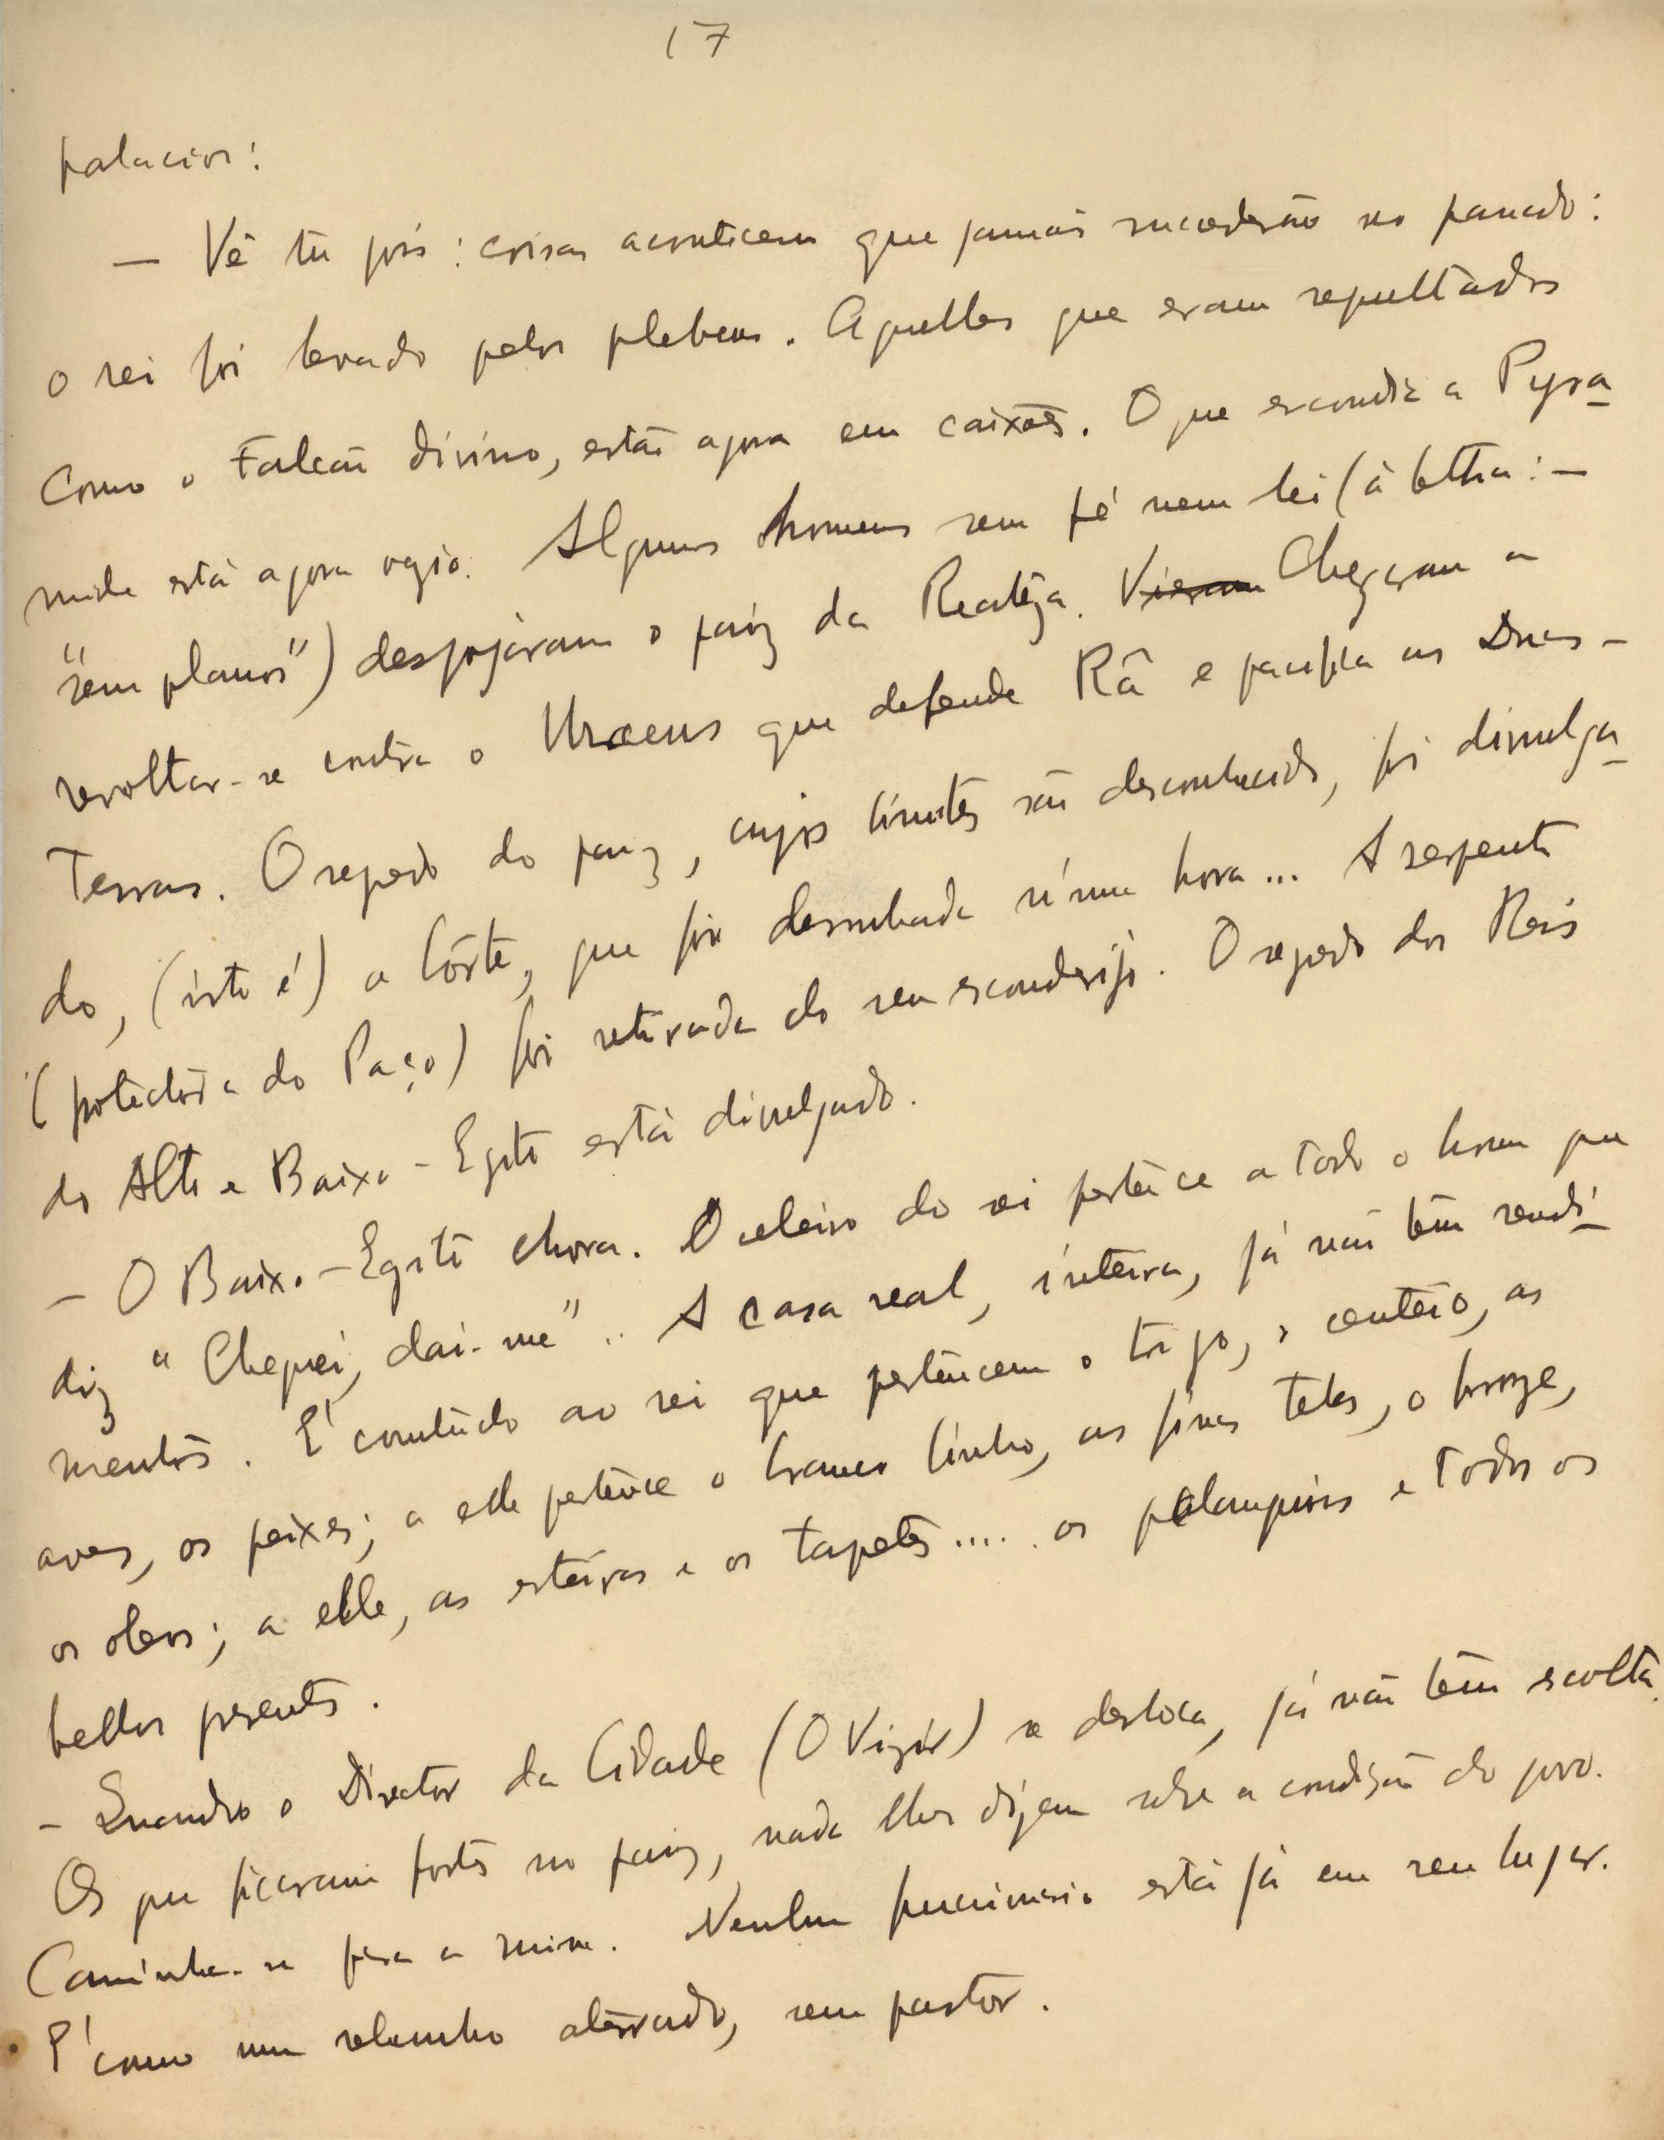 17
palacios:
— Vê tu pois: coisas acontecem que jamais sucederão no passado:
o rei foi levado pelos plebeus. Aquelles que eram sepultados
como o Falcão divino, estão agora em caixões. O que escondia a Pyra
mide está agora vazio. Alguns homens sem fé nem lei (à lettra: —
"sem planos") despojaram o paiz da Realeza. Vieram Chegaram a
revoltar-se contra o Uraeus que defende Râ e pacifica as Duas-
Terras. O segredo do paiz, cujos limites são desconhecidos, foi divulga
do, (isto é) a Côrte, que foi derrubada n'uma hora... A serpente
(protectora do Paço) foi retirada do seu esconderijo. O segredo dos Reis
do Alto e Baixo-Egito está divulgado.
— O Baixo-Egito chora. O celeiro do rei pertence a todo o homem que
diz "Cheguei, dai-me".. A casa real, inteira, já não têm rendi
mentos. E' comtudo ao rei que pertencem o trigo, o centeio, as
aves, os peixes; a elle pertence o branco linho, as finas telas, o bronze,
os oleos; a elle, as esteiras e os tapetes..... os palanquins e todos os
bellos presentes.
- Quando o Director da Cidade (O Vizir) se desloca, já não têm escolta.
Os que ficaram fortes no paiz, nada lhes dizem sobre a condição do povo.
Caminha-se para a ruina. Nenhum funcionario está já em seu lugar.
E' como um rebanho aterrado, sem pastor.